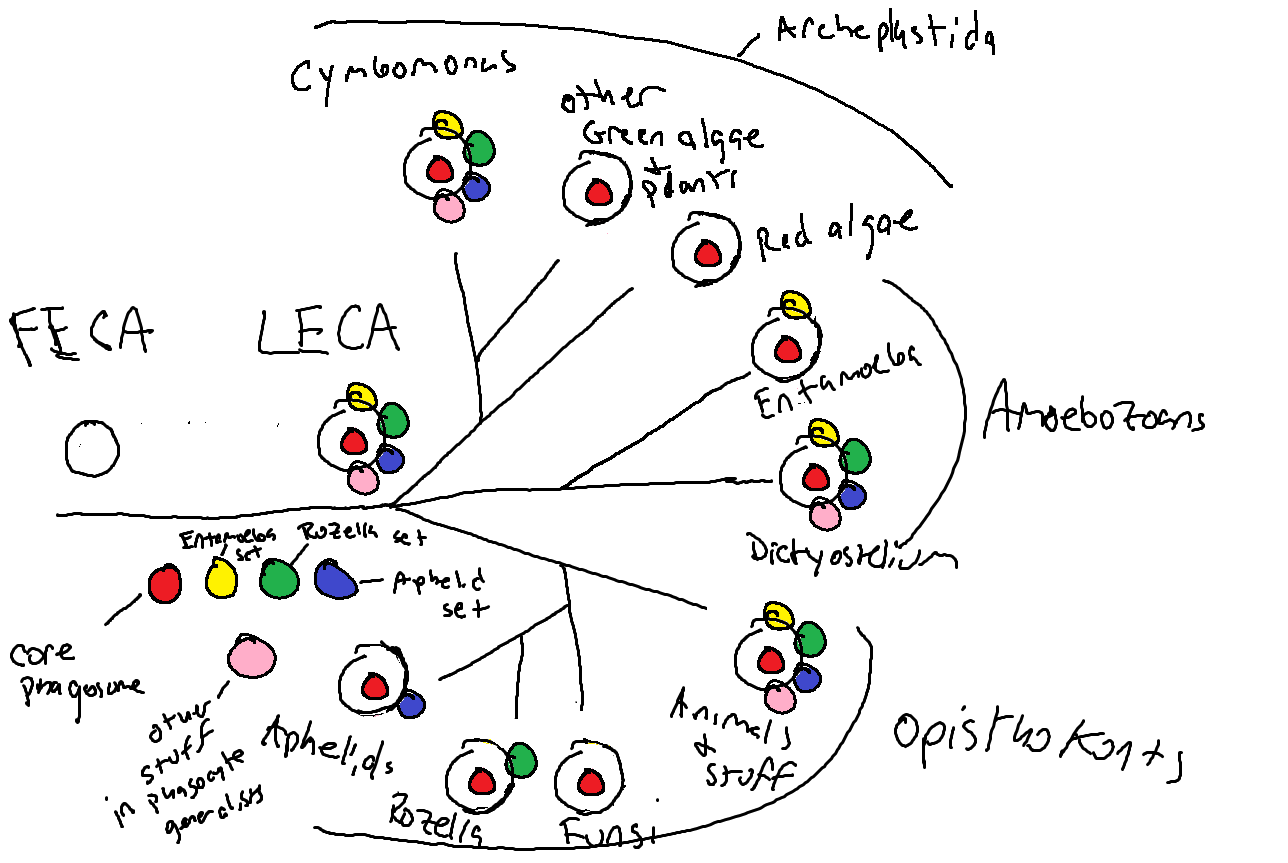 Archeplastida
Cymbomonas
other
Green algae
+
plants
Red algae
FECA
LECA
Entamoeba
Amoebozoans
Dictyostelium
Entamoeba
set
Rozella set
Aphelid
set
core
phagosome
other
stuff
in phagocyte
generalists
Aphelids
Rozella
Fungi
Animals
&
stuff
Opisthokonts